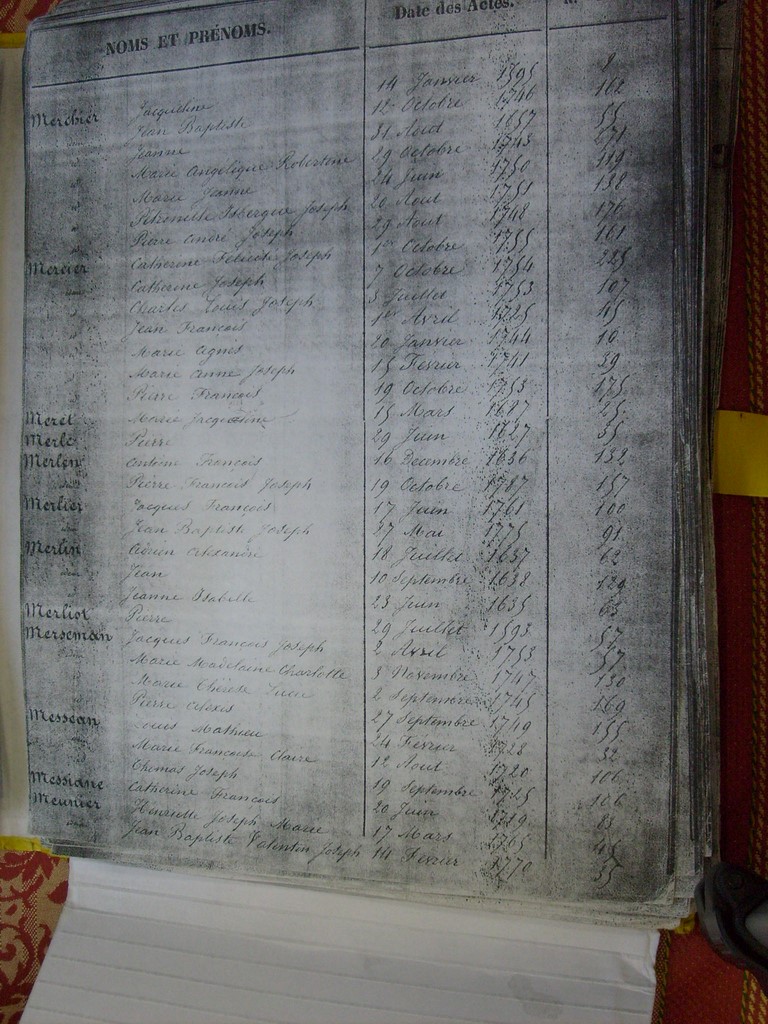 NOMS ET PRÉNOMS. Date des Actes.
Merchier Jacqueline 14 Janvier 1595 8
Jean Baptiste 12 Octobre 1746 162
Jeanne 31 Aout 1657 55
Marie Angelique Robertine 29 Octobre 1743 271
Marie Jeanne 24 Juin 1750 119
Petronille Isbergue Joseph 20 Aout 1751 138
Pierre André Joseph 29 Aout 1748 176
Mercier Catherine Felicité Joseph 1er Octobre 1755 161
Catherine Joseph 7 Octobre 1754 225
Charles Louis Joseph 3 Juillet 1753 107
Jean Francois 1er Avril 1725 45
Marie Agnes 20 Janvier 1744 10
Marie Anne Joseph 15 Fevrier 1741 39
Pierre Francois 19 Octobre 1753 175
Meret Marie Jacqueline 15 Mars 1687 25
Merle Pierre 29 Juin 1627 55
Merlen Antoine Francois 16 Decembre 1636 132
Pierre Francois Joseph 19 Octobre 1787 157
Merlier Jacques Francois 17 Juin 1761 100
Jean Baptiste Joseph 27 Mai 1775 91
Merlin Adrien Alexandre 18 Juillet 1657 62
Jean 10 Septembre 1638 129
Jeanne Isabelle 23 Juin 1635 63
Merliot Pierre 29 Juillet 1593 57
Merseman Jacques Francois Joseph 2 Avril 1753 57
Marie Madelaine Charlotte 3 Novembre 1747 130
Marie Thérèse Lucie 2 Septembre 1745 169
Pierre Alexis 27 Septembre 1749 155
Messean Louis Mathieu 24 Fevrier 1728 32
Marie Francoise Claire 12 Aout 1720 106
Thomas Joseph 19 Septembre 1725 106
Messiane Catherine Francois 20 Juin 1719 83
Meunier Henriette Joseph Marie 17 Mars 1765 45
Jean Baptiste Valentin Joseph 14 Fevrier 1770 55